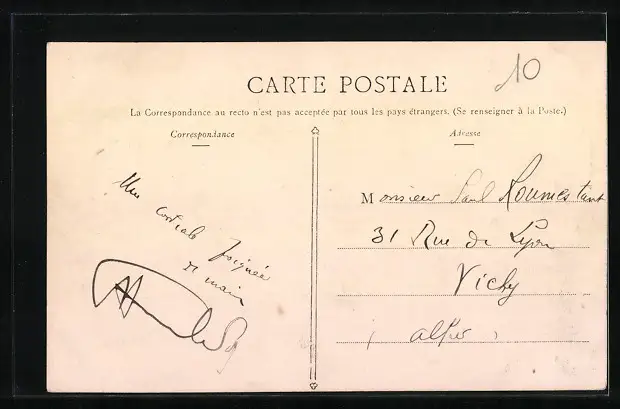 10
CARTE POSTALE
La Correspondance au recto n'est pas acceptée par tous les pays étrangers. (Se renseigner à la Poste.)
Correspondance
Adresse
Une
cordiale poignée
de main
Monsieur Paul Roumestant
31 Rue de Lyon
Vichy
(Allier)